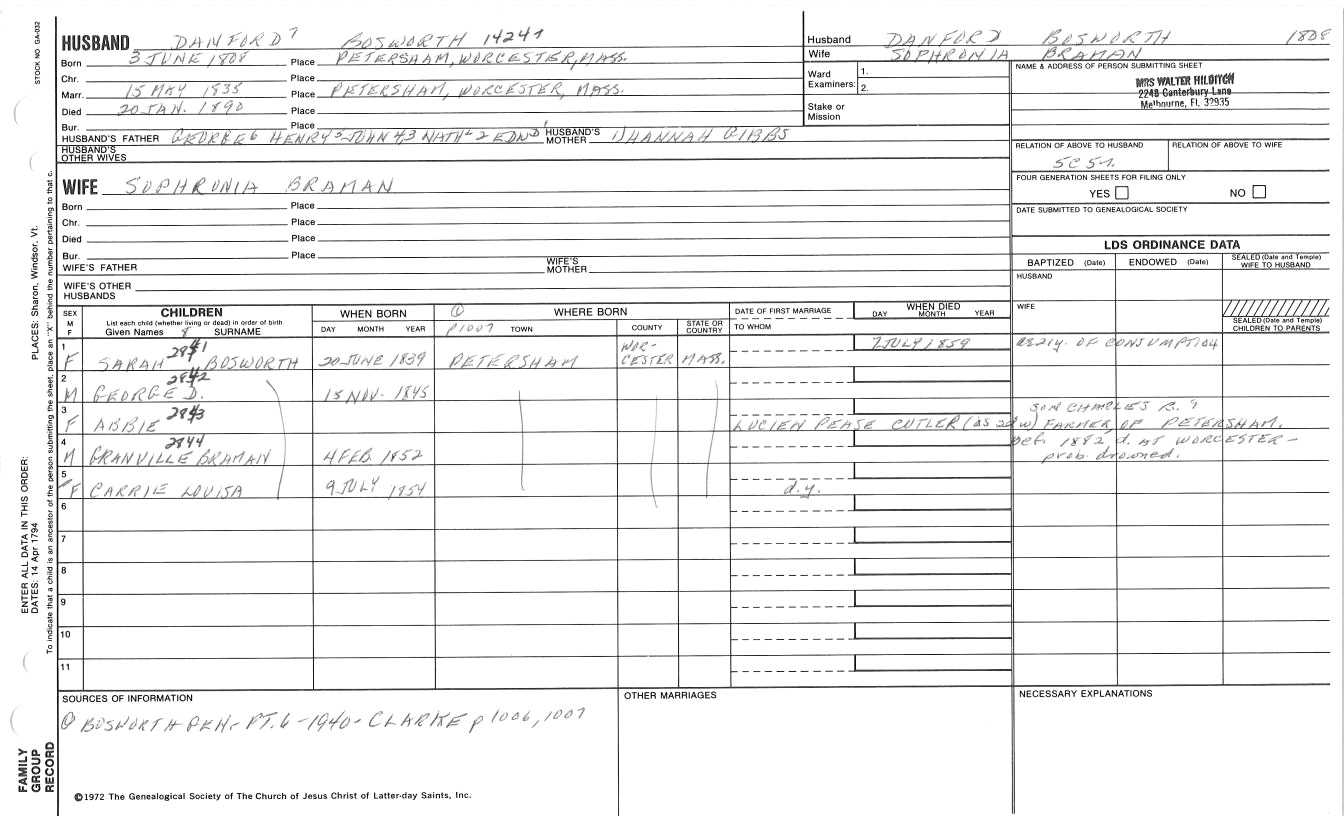 STOCK NO. GA-032
HUSBAND DANFORD 7 BOSWORTH 14247
Born 3 JUNE 1808 Place PETERSHAM, WORCESTER, MASS.
Chr. Place
Marr. 15 MAY 1835 Place PETERSHAM, WORCESTER, MASS.
Died 20 JAN. 1890 Place
Bur. Place
HUSBAND'S FATHER GEORGE 6 HENRY 5 JOHN 4,3 NATHL 2 EDWD 1 HUSBAND'S MOTHER 1) HANNAH GIBBS
HUSBAND'S OTHER WIVES
Husband DANFORD BOSWORTH 1808
Wife SOPHRONIA BRAMAN
Ward Examiners: 1. 2.
Stake or Mission
NAME & ADDRESS OF PERSON SUBMITTING SHEET
MRS WALTER HILDITCH
2248 Canterbury Lane
Melbourne, Fl. 32935
RELATION OF ABOVE TO HUSBAND RELATION OF ABOVE TO WIFE
FOUR GENERATION SHEETS FOR FILING ONLY
YES NO
DATE SUBMITTED TO GENEALOGICAL SOCIETY
WIFE SOPHRONIA BRAMAN
Born Place
Chr. Place
Died Place
Bur. Place
WIFE'S FATHER WIFE'S MOTHER
WIFE'S OTHER HUSBANDS
LDS ORDINANCE DATA
BAPTIZED (Date) ENDOWED (Date) SEALED (Date and Temple) WIFE TO HUSBAND
HUSBAND
WIFE
SEALED (Date and Temple) CHILDREN TO PARENTS
SEX M F CHILDREN List each child (whether living or dead) in order of birth Given Names 8 SURNAME
WHEN BORN DAY MONTH YEAR
① WHERE BORN p1007 TOWN COUNTY STATE OR COUNTRY
DATE OF FIRST MARRIAGE TO WHOM
WHEN DIED DAY MONTH YEAR
1 F SARAH 2841 BOSWORTH 20 JUNE 1839 PETERSHAM WORCESTER MASS. 7 JULY 1859 OF CONSUMPTION
2 M GEORGE D. 2842 15 NOV. 1845
3 F ABBIE 2843 LUCIEN PEASE CUTLER (as 2d w) FARMER, OF PETERSHAM.
SON CHARLES R. 9
4 M GRANVILLE BRAMAN 2844 4 FEB. 1852 bef. 1882, d. AT WORCESTER -
prob. drowned.
5 F CARRIE LOUISA 9 JULY 1854 d.y.
6
7
8
9
10
11
SOURCES OF INFORMATION
① BOSWORTH GEN - PT. 6 - 1940 - CLARKE p 1006, 1007
OTHER MARRIAGES
NECESSARY EXPLANATIONS
©1972 The Genealogical Society of The Church of Jesus Christ of Latter-day Saints, Inc.
PLACES: Sharon, Windsor, Vt.
ENTER ALL DATA IN THIS ORDER:
DATES: 14 Apr 1794
To indicate that a child is an ancestor of the person submitting the sheet, place an "X" behind the number pertaining to that c.
FAMILY GROUP RECORD